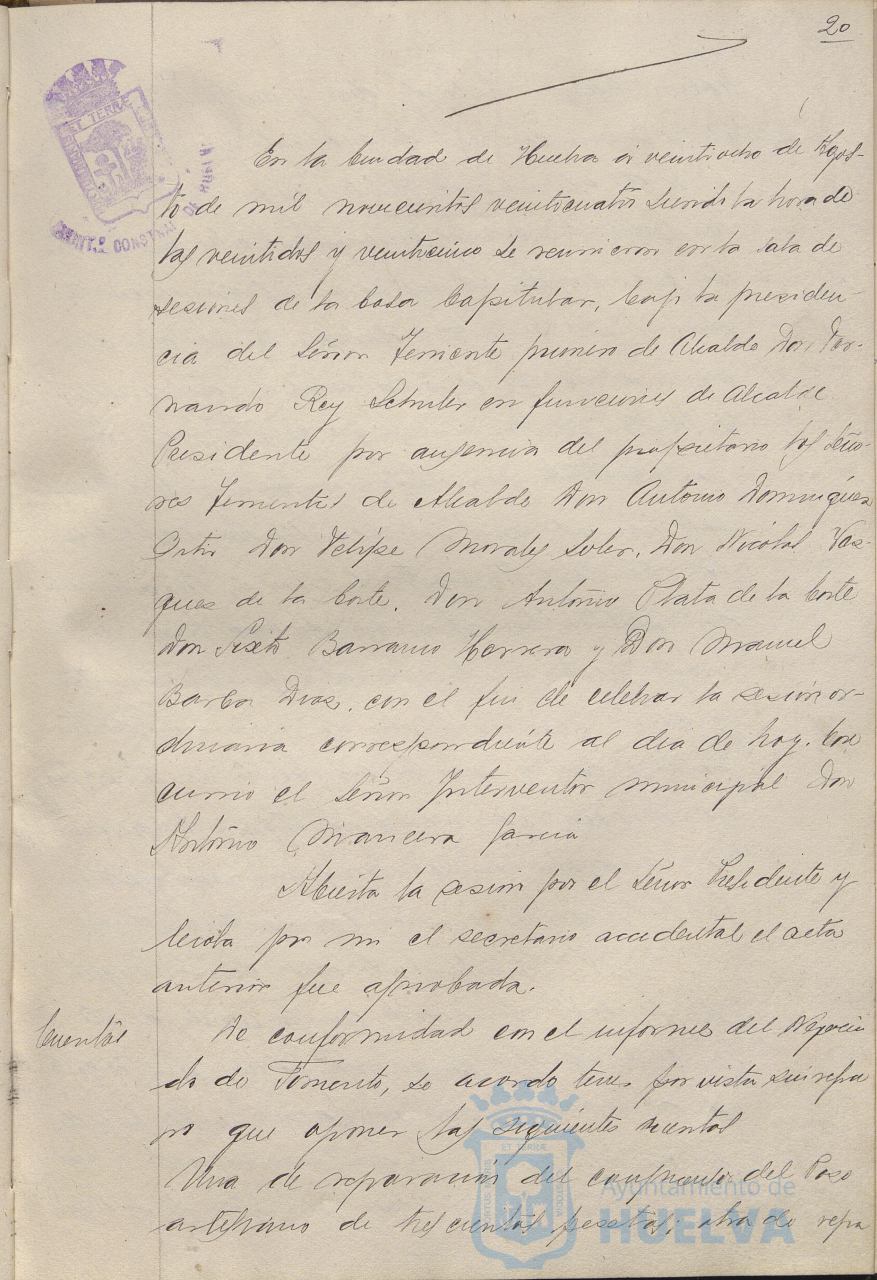 20
En la Ciudad de Huelva á veintiocho de Agos-
to de mil novecientos veinticuatro siendo la hora de
las veintidos y veinticinco se reunieron en la sala de
sesiones de la Casa Capitular, bajo la presiden-
cia del Señor Teniente primero de Alcalde Don Fer-
nando Rey Schuler en funciones de Alcalde
Presidente por ausencia del propietario los Seño-
res Tenientes de Alcalde Don Antonio Dominguez
Ortiz Don Felipe Morales Soler, Don Nicolas Vaz-
quez de la Corte, Don Antonio Plata de la Corte
Don Sixto Barranco Herrera y Don Manuel
Barba Diaz, con el fin de celebrar la sesion or-
dinaria correspondiente al dia de hoy. Con
currio el Señor Interventor municipal Don
Antonio Mancera Garcia
Abierta la sesion por el Señor Presidente y
leida por mi el secretario accidental el acta
anterior fue aprobada.
Cuentas
De conformidad con el informe del Negocia
do de Fomento, se acordo tener por vista sin repa
ro que oponer las siguientes cuentas
Una de reparacion del del Pozo
artesiano de trescientas pesetas; otra de repa
ET TERRÆ
CONSTNAL
Ayuntamiento de
HUELVA